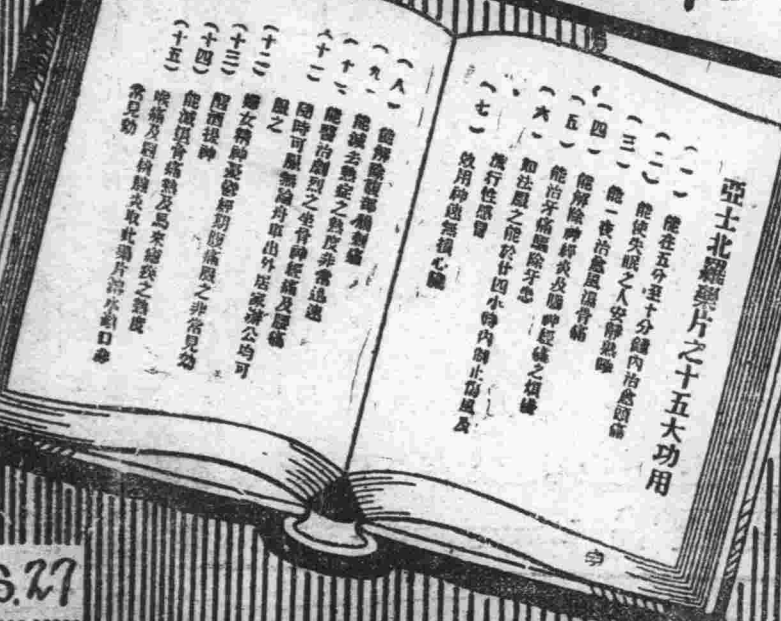 亞士北羅藥片之十五大功用
(一) 能在五分至十分鐘內治愈頭痛
(二) 能使失眠之人安靜熟睡
(三) 能一夜治愈風濕骨痛
(四) 能解除神經炎及腦神經痛之煩擾
(五) 能治牙痛驅除牙患
(六) 如法服之能於廿四小時內制止傷風及
流行性感冒
(七) 效用神速無損心臟
(八) 能解除腹部劇痛
(九) 能減去熱症之熱度非常迅速
(十) 能醫治劇烈之坐骨神經痛及腰痛
(十一) 隨時可服無論舟車出外居家辦公均可
服之
(十二) 婦女精神憂鬱經期腹痛服之非常見効
(十三) 醒酒提神
(十四) 能減退骨痛熱及馬來瘧疾之熱度
(十五) 喉痛及扁桃腺炎取此藥片溶水漱口非
常見効
S.27